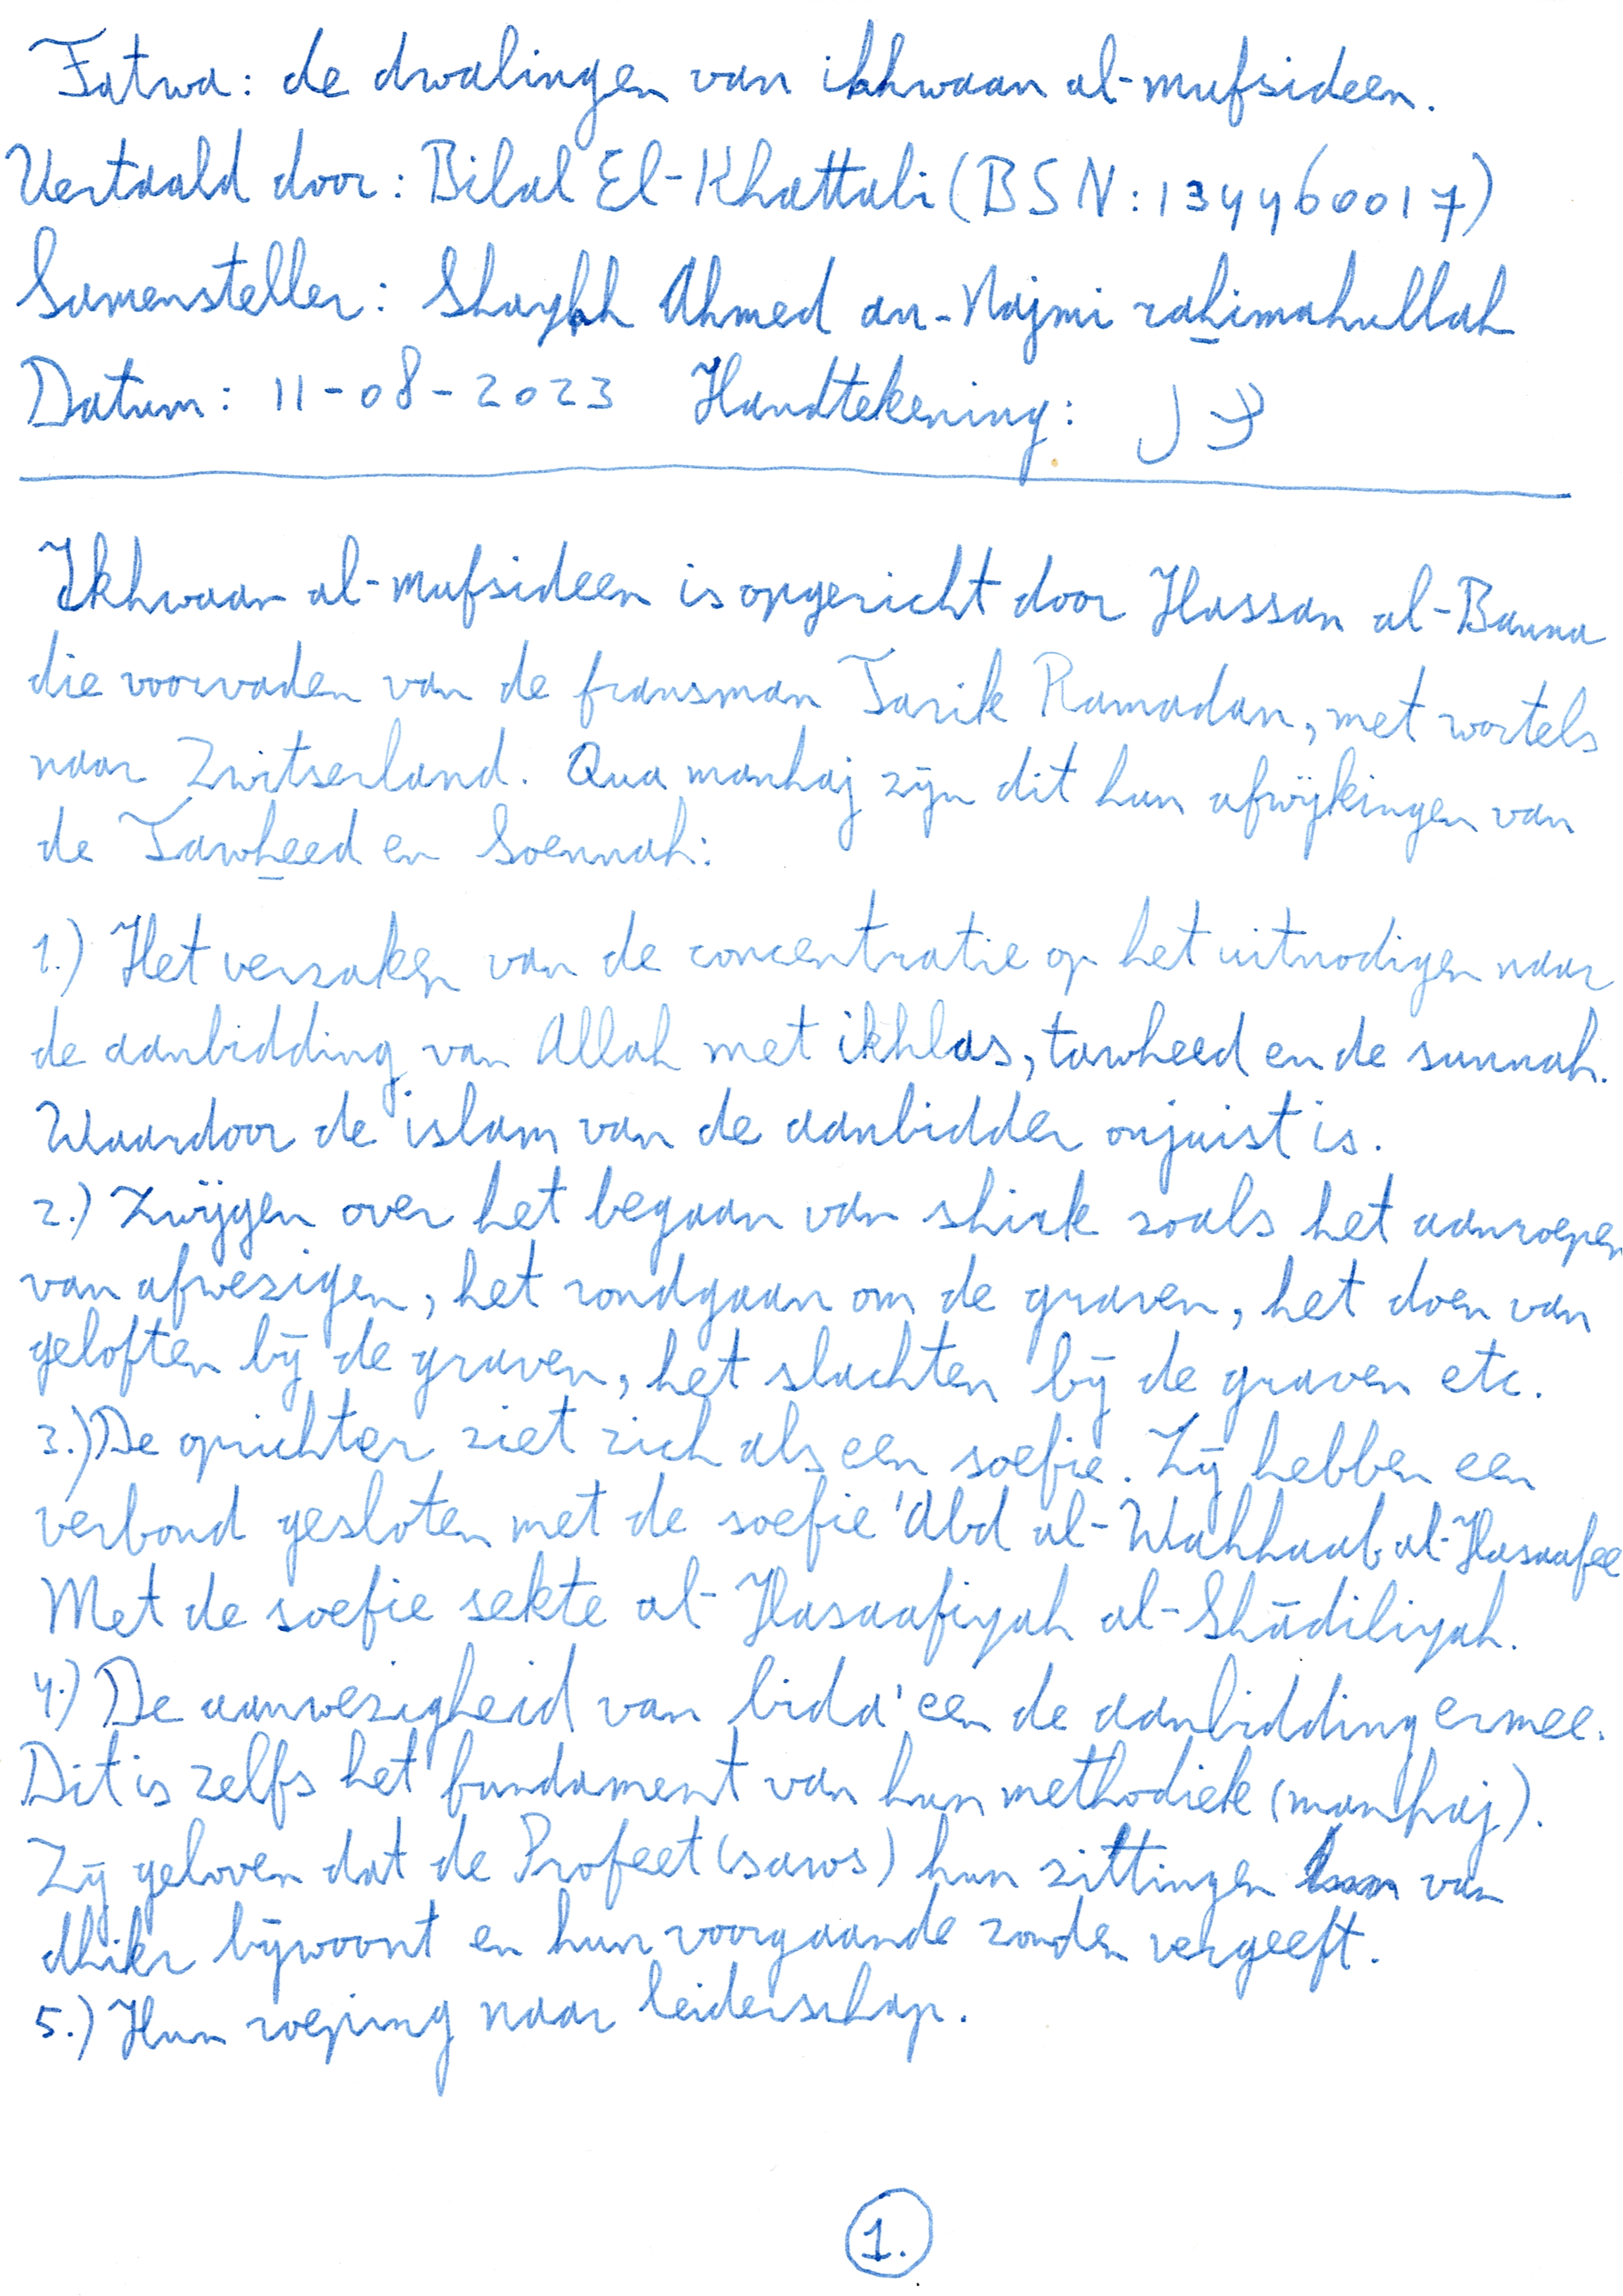 Fatwa: de dwalingen van ikhwaan al-mufsideen.
Vertaald door: Bilal El-Khattabi (BSN: 134460017)
Samensteller: Shaykh Ahmed an-Najmi rahimahullah
Datum: 11-08-2023 Handtekening:
Ikhwaan al-mufsideen is opgericht door Hassan al-Banna
die voorvaden van de fransman Tarik Ramadan, met wortels
naar Zwitserland. Qua manhaj zijn dit hun afwijkingen van
de Tawheed en Soennah:
1.) Het verzaken van de concentratie op het uitnodigen naar
de aanbidding van Allah met ikhlas, tawheed en de sunnah.
Waardoor de islam van de aanbidder onjuist is.
2.) Zwijgen over het begaan van shirk zoals het aanroepen
van afwezigen, het rondgaan om de graven, het doen van
geloften bij de graven, het slachten bij de graven etc.
3.) De oprichter ziet zich als een soefie. Zij hebben een
verbond gesloten met de soefie 'Abd al-Wahhaab al-Hasaafee
Met de soefie sekte al-Hasaafiyah al-Shādiliyah.
4.) De aanwezigheid van bida' een de aanbidding ermee.
Dit is zelfs het fundament van hun methodiek (manhaj).
Zij geloven dat de Profeet (saws) hun zittingen van
dhikr bijwoont en hun voorgaande zonden vergeeft.
5.) Hun roeping naar leiderschap.
1.